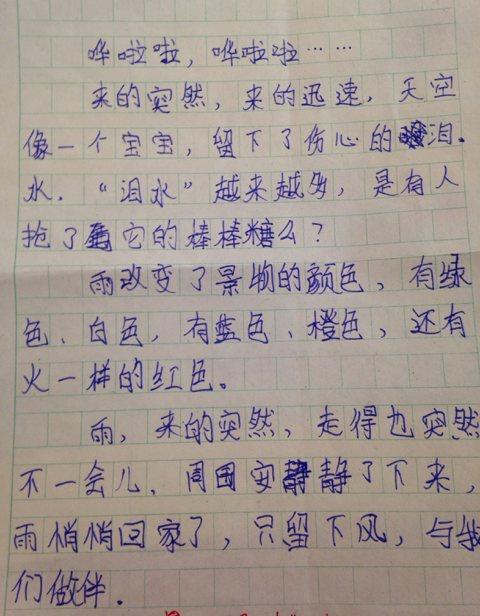 哗啦啦，哗啦啦……
来的突然，来的迅速，天空
像一个宝宝，留下了伤心的泪
水．“泪水”越来越多，是有人
抢了它的棒棒糖么？
雨改变了景物的颜色，有绿
色、白色，有蓝色、橙色，还有
火一样的红色。
雨，来的突然，走得也突然
不一会儿，周围安静了下来，
雨悄悄回家了，只留下风，与我
们做伴．